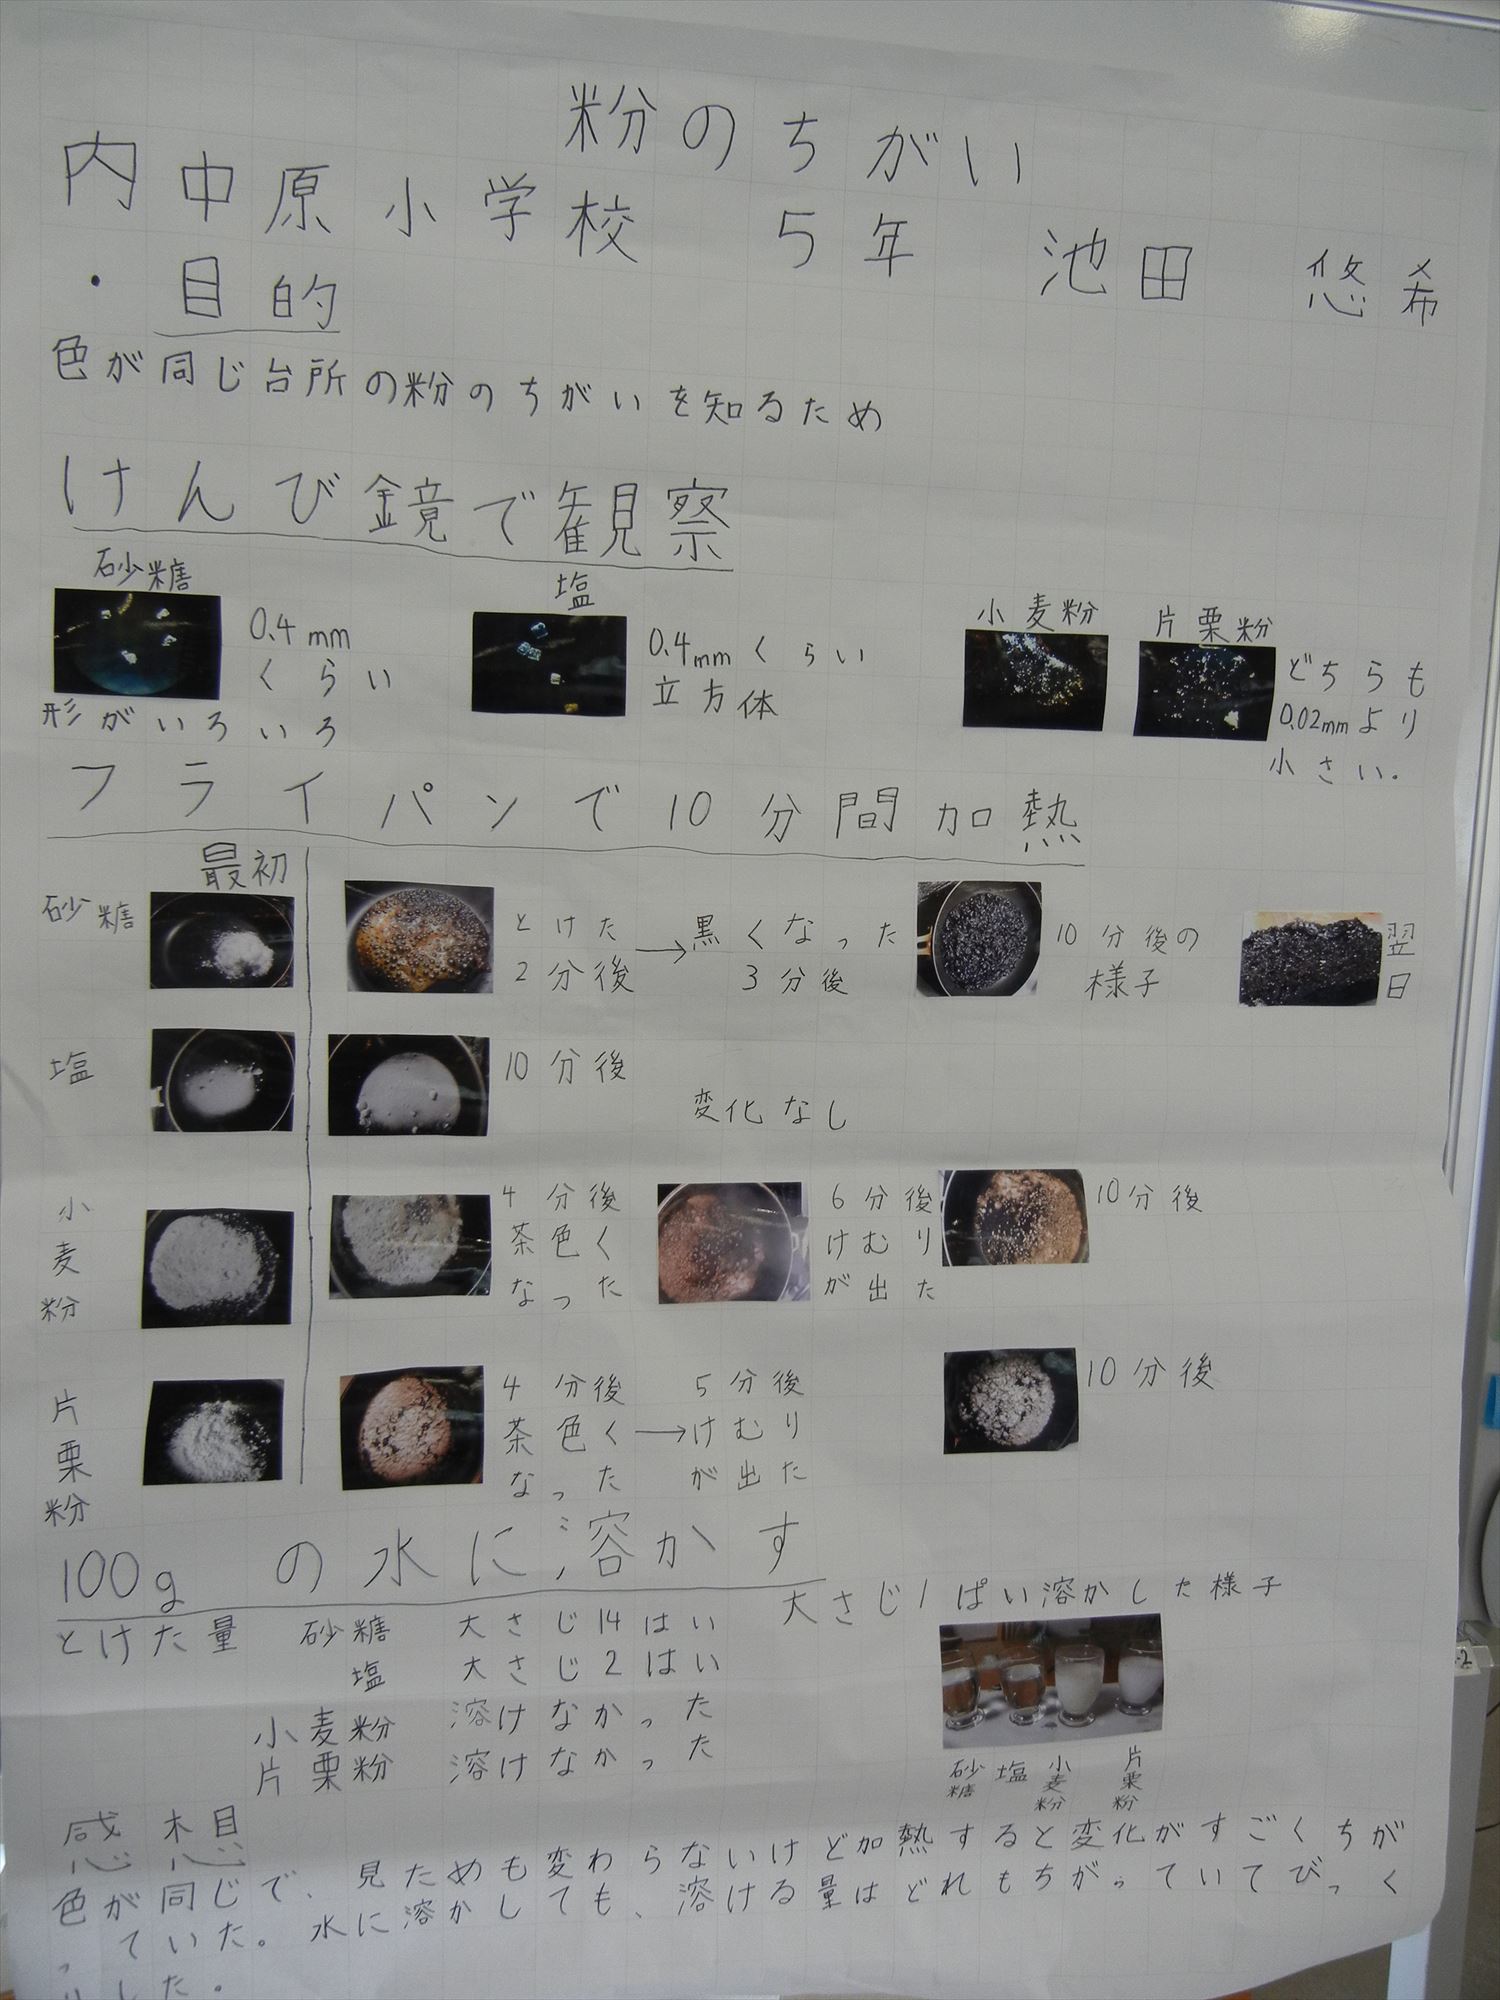 粉のちがい
内中原小学校 5年 池田 悠希
・目的
色が同じ台所の粉のちがいを知るため
けんび鏡で観察
砂糖
0.4mm
くらい
形がいろいろ
塩
0.4mmくらい
立方体
小麦粉
片栗粉
どちらも
0.02mmより
小さい.
フライパンで10分間加熱
最初
砂糖
とけた
2分後
→
黒くなった
3分後
10分後の
様子
翌
日
塩
10分後
変化なし
小
麦
粉
4分後
茶色く
なった
6分後
けむり
が出た
10分後
片
栗
粉
4分後
茶色く
なった
→
5分後
けむり
が出た
10分後
100gの水に溶かす
とけた量 砂糖 大さじ14はい
塩 大さじ2はい
小麦粉 溶けなかった
片栗粉 溶けなかった
大さじ1ぱい溶かした様子
砂糖 塩 小麦粉 片栗粉
感想
色が同じで、見ためも変わらないけど加熱すると変化がすごくちが
っていた。水に溶かしても、溶ける量はどれもちがっていてびっく
りした。